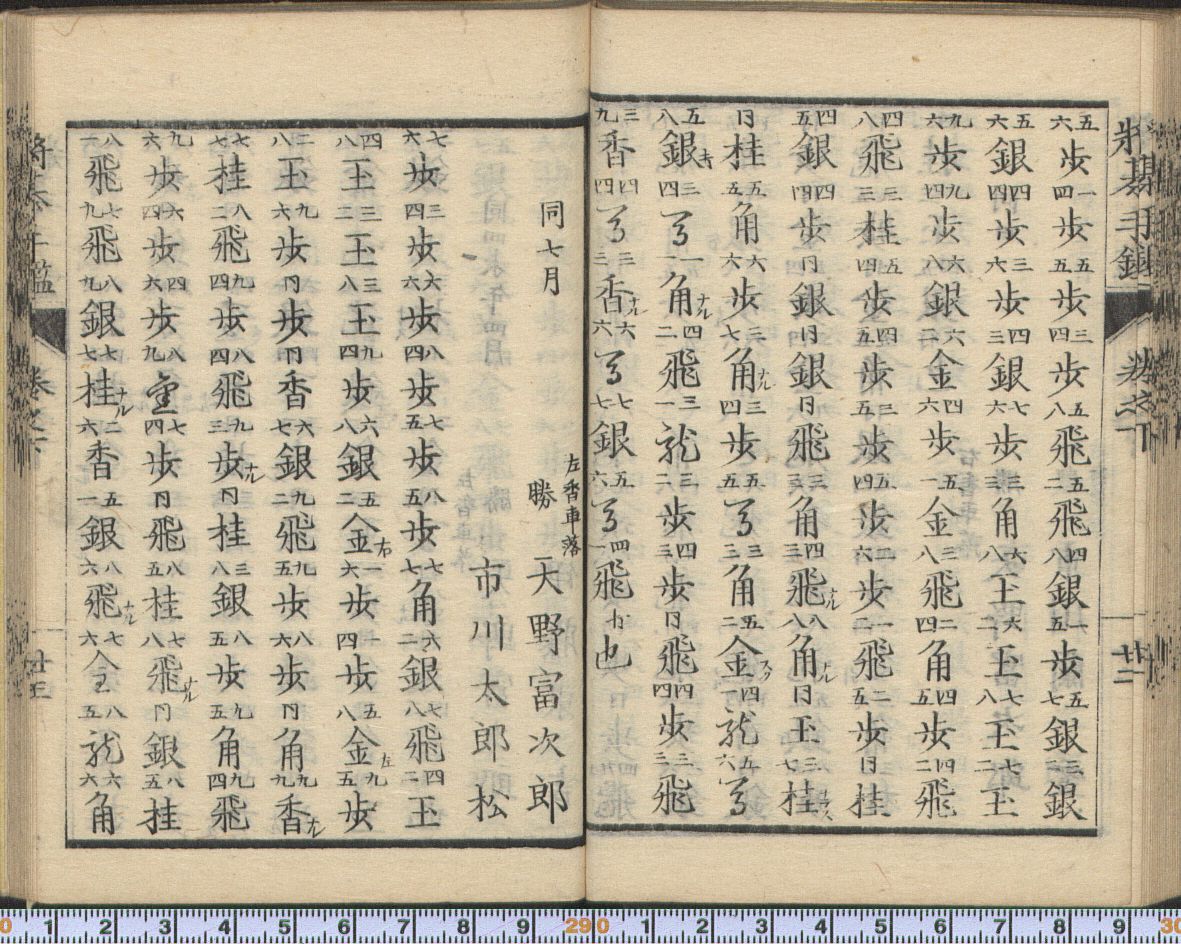 将棊手鑑 巻之下 廿二
五六歩 一四歩 五五歩 三四歩 五八飛 五二飛 四八銀 一五歩 五七銀 三二銀
五六銀 四四歩 三六歩 四三銀 七六歩 三三角 六八玉 六二玉 七八玉 七二玉
九六歩 九四歩 六八銀 六二金 四六歩 五一金 三八飛 二四角 四五歩 四二飛
四八飛 三三桂 五四歩 四五歩 三五歩 五四歩 二六歩 一二飛 二五歩 同桂
四五銀 四四歩 同銀 同銀 同飛 三三角 四三飛ナル 八八角ナル 同玉 三七桂フナラス
同桂 五五角 六六歩 三七角ナル 三四歩 五五馬 三三角 五二金スク 四一龍 五六馬
五八銀右 三四馬 一一角ナル 四二飛 三一龍 三二歩 四三歩 同飛 四四歩 三三飛
三九香 四四馬 三三香ナル 六六馬 七七銀 五六馬 四一飛 也
同七月
左香車落
天野富次郎
勝
市川太郎松
七六歩 三四歩 六六歩 八四歩 七五歩 八五歩 七七角 六二銀 七八飛 四二玉
四八玉 三二玉 三八玉 九四歩 六八銀 五二金右 一六歩 一四歩 五八金左 九五歩
二八玉 九六歩 同歩 同香 六七銀 九二飛 九五歩 八六歩 同角 九九香ナル
七七桂 八二飛 九四歩 八四飛 九三歩ナル 同桂 三八銀 八五歩 九五角 九四飛
九六歩 六四歩 四六歩 八九 七四歩 同飛 八五桂 七八飛ナル 同銀 八五桂
八一飛 七九飛 八九銀 七七桂ナル 二六香 五一銀 八六飛ナル 七六全 八五龍 六六角
将棊手鑑 巻之下 廿三